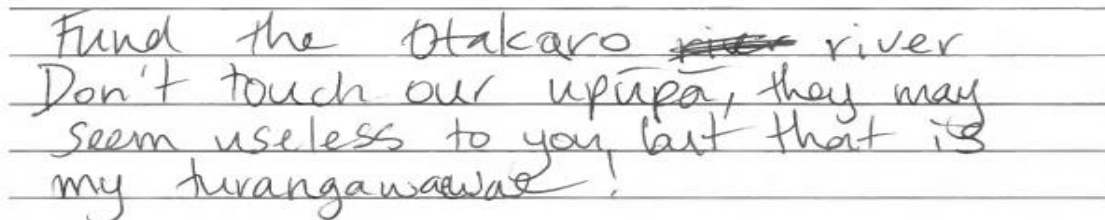 Fund the Otakaro river
Don't touch our upūpā, they may
seem useless to you, but that is
my turangawaewae!